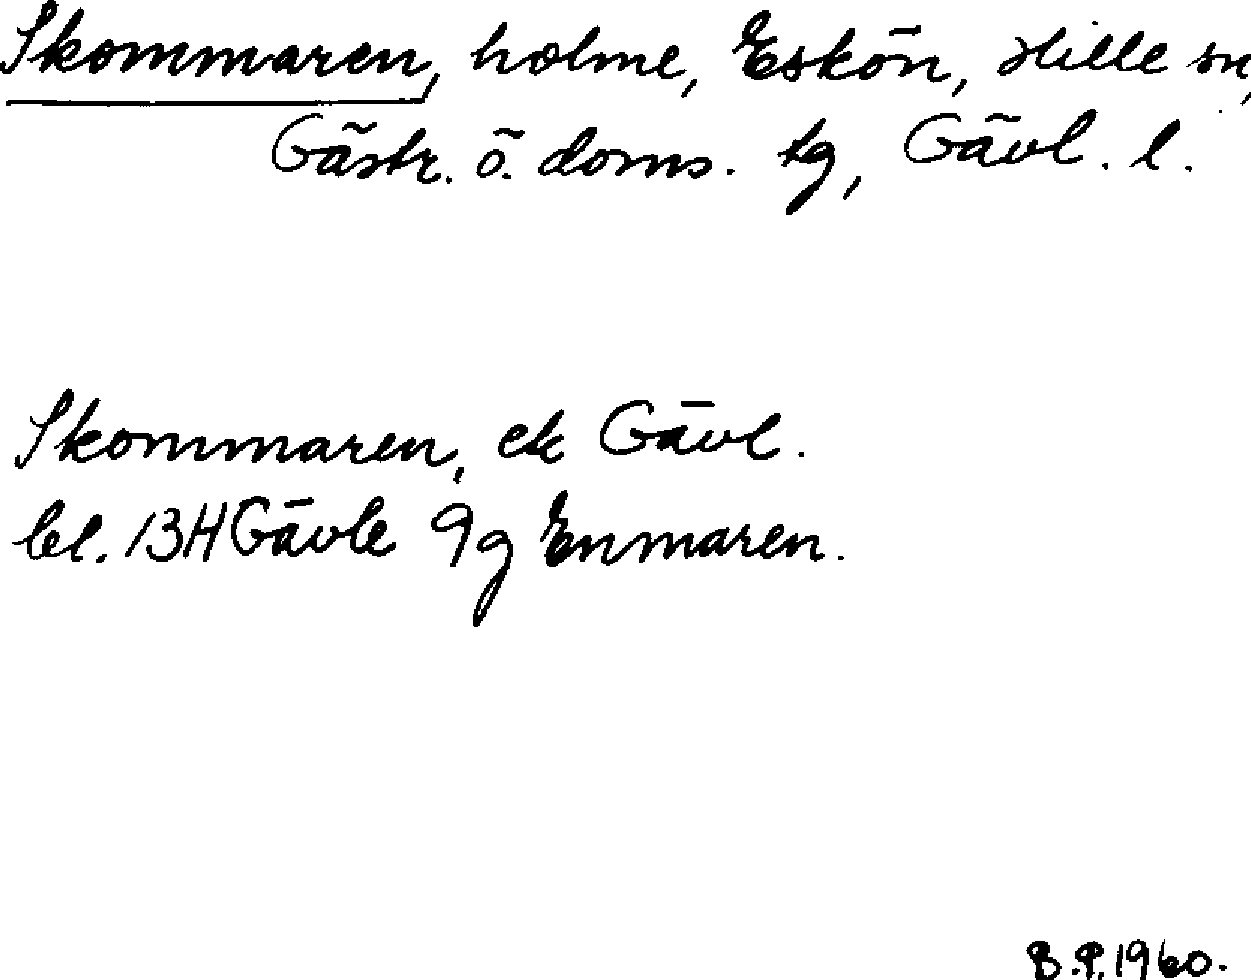 Skommaren, holme, Eskön, Hille sn,
Gästr. ö. doms. tg, Gävl. l.
Skommaren, ek Gävl.
bl. 13H Gävle 9g Enmaren.
B.P. 1960.